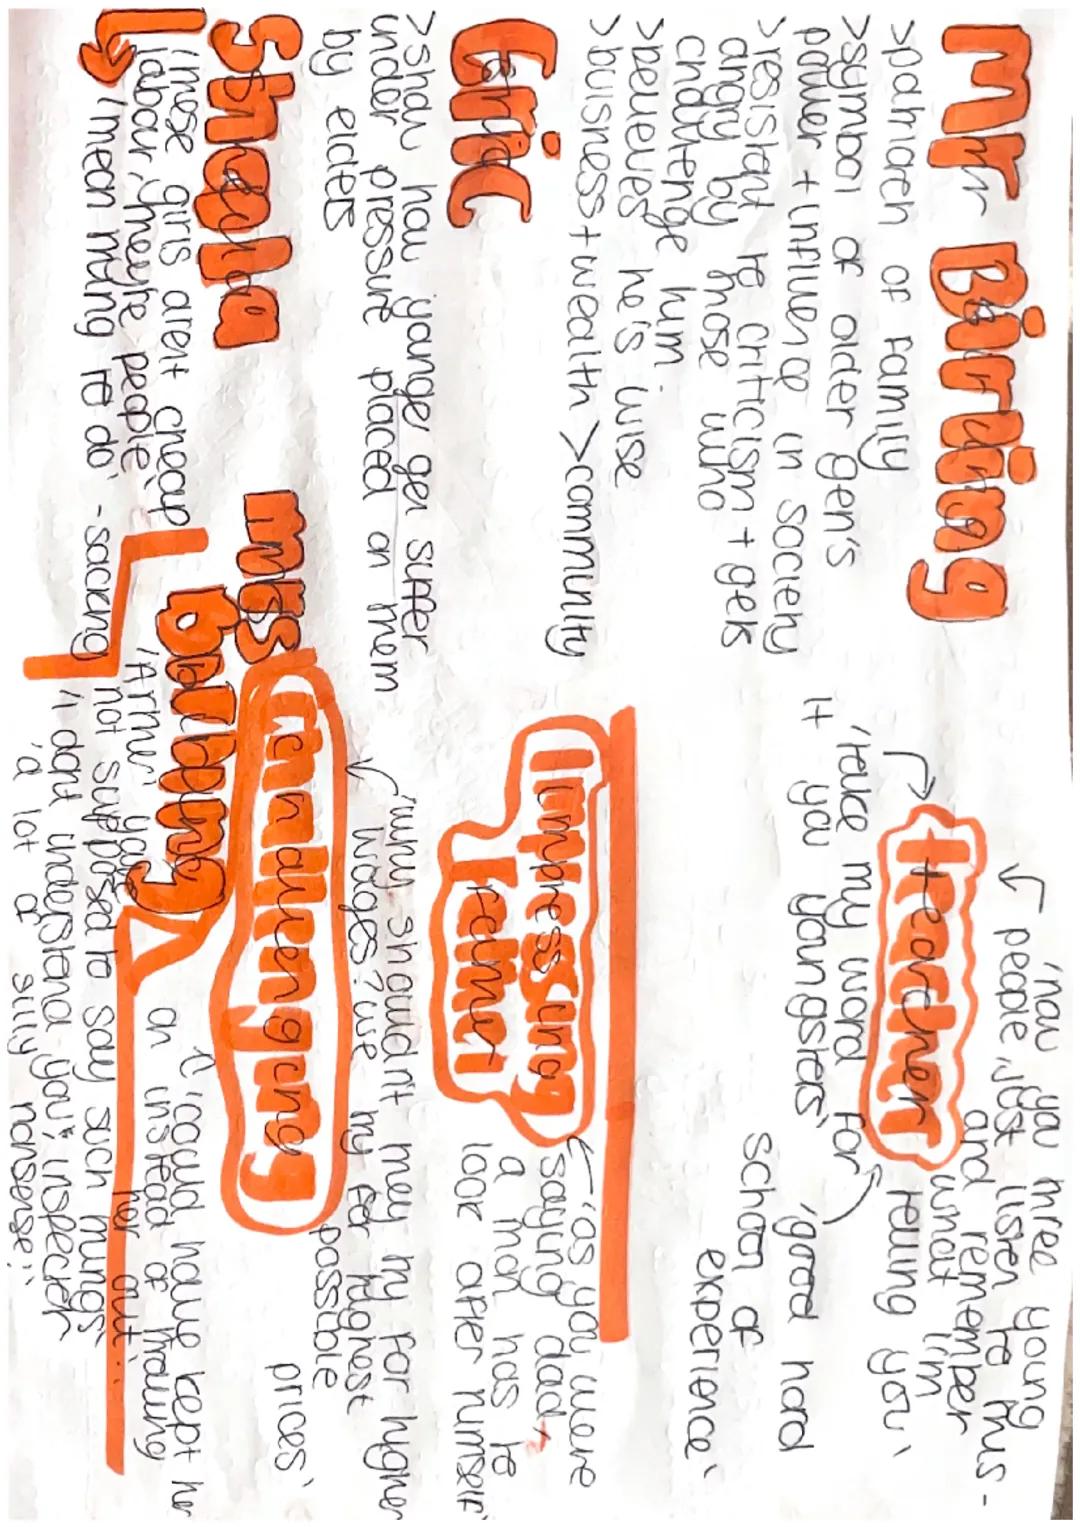 Mr Birling
>patriach of family
>symbol of older gen's
power + influence in society
>resistant to criticism + gets
angry by those who
challenge him.
>believes he's wise
>buisness + wealth > community
'now you three young
people, just listen to this -
and remember
what i'm
telling you'
teacher
'take my word for
it you youngsters'
'good hard
school of
experience'
Eric
>show how younge gen suffer
under pressure placed on them
by elders
Impressing
father
'as you were
saying dad,
a man has to
look after himself'
Sheila
'these girls aren't cheap
labour, they're people'
'mean thing to do' - sacking
challenging
'why shouldn't they try for higher
wages? we try for highest
possible
prices'
'could have kept her
on instead of throwing
her out..'
mrs
birling
'Arther you're
not supposed to say such things'
'i dont understand you, inspector'
'a lot of silly nonsense!'